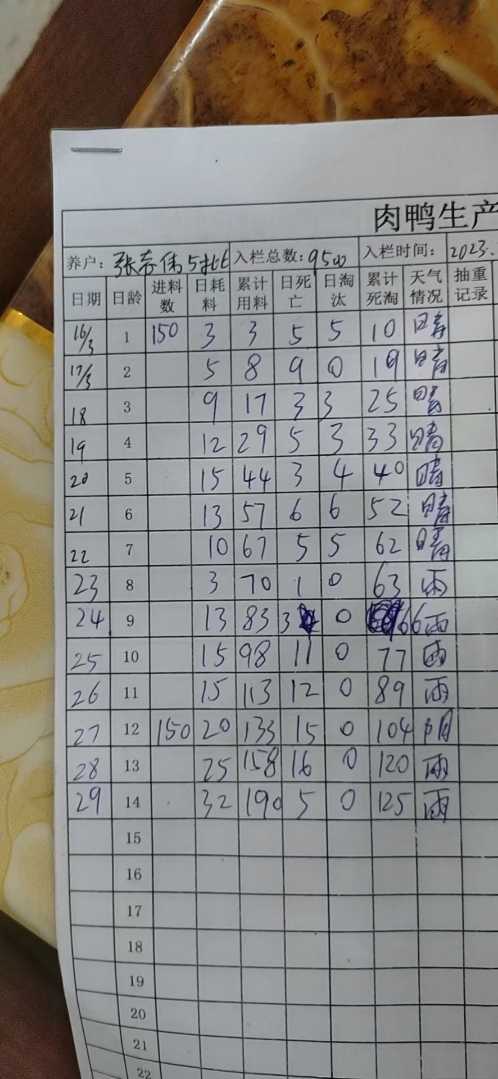 肉鸭生产
养户: 张 伟 5批 入栏总数: 9500 入栏时间: 2023.
日期 日龄 进料数 日耗料 累计用料 日死亡 日淘汰 累计死淘 天气情况 抽重记录
16/3 1 150 3 3 5 5 10 晴
17/3 2 5 8 9 0 19 晴
18 3 9 17 3 3 25 晴
19 4 12 29 5 3 33 晴
20 5 15 44 3 4 40 晴
21 6 13 57 6 6 52 晴
22 7 10 67 5 5 62 晴
23 8 3 70 1 0 63 雨
24 9 13 83 3 0 66 雨
25 10 15 98 11 0 77 雨
26 11 15 113 12 0 89 雨
27 12 150 20 133 15 0 104
28 13 25 158 16 0 120 雨
29 14 32 190 5 0 125 雨
15
16
17
18
19
20
21
22